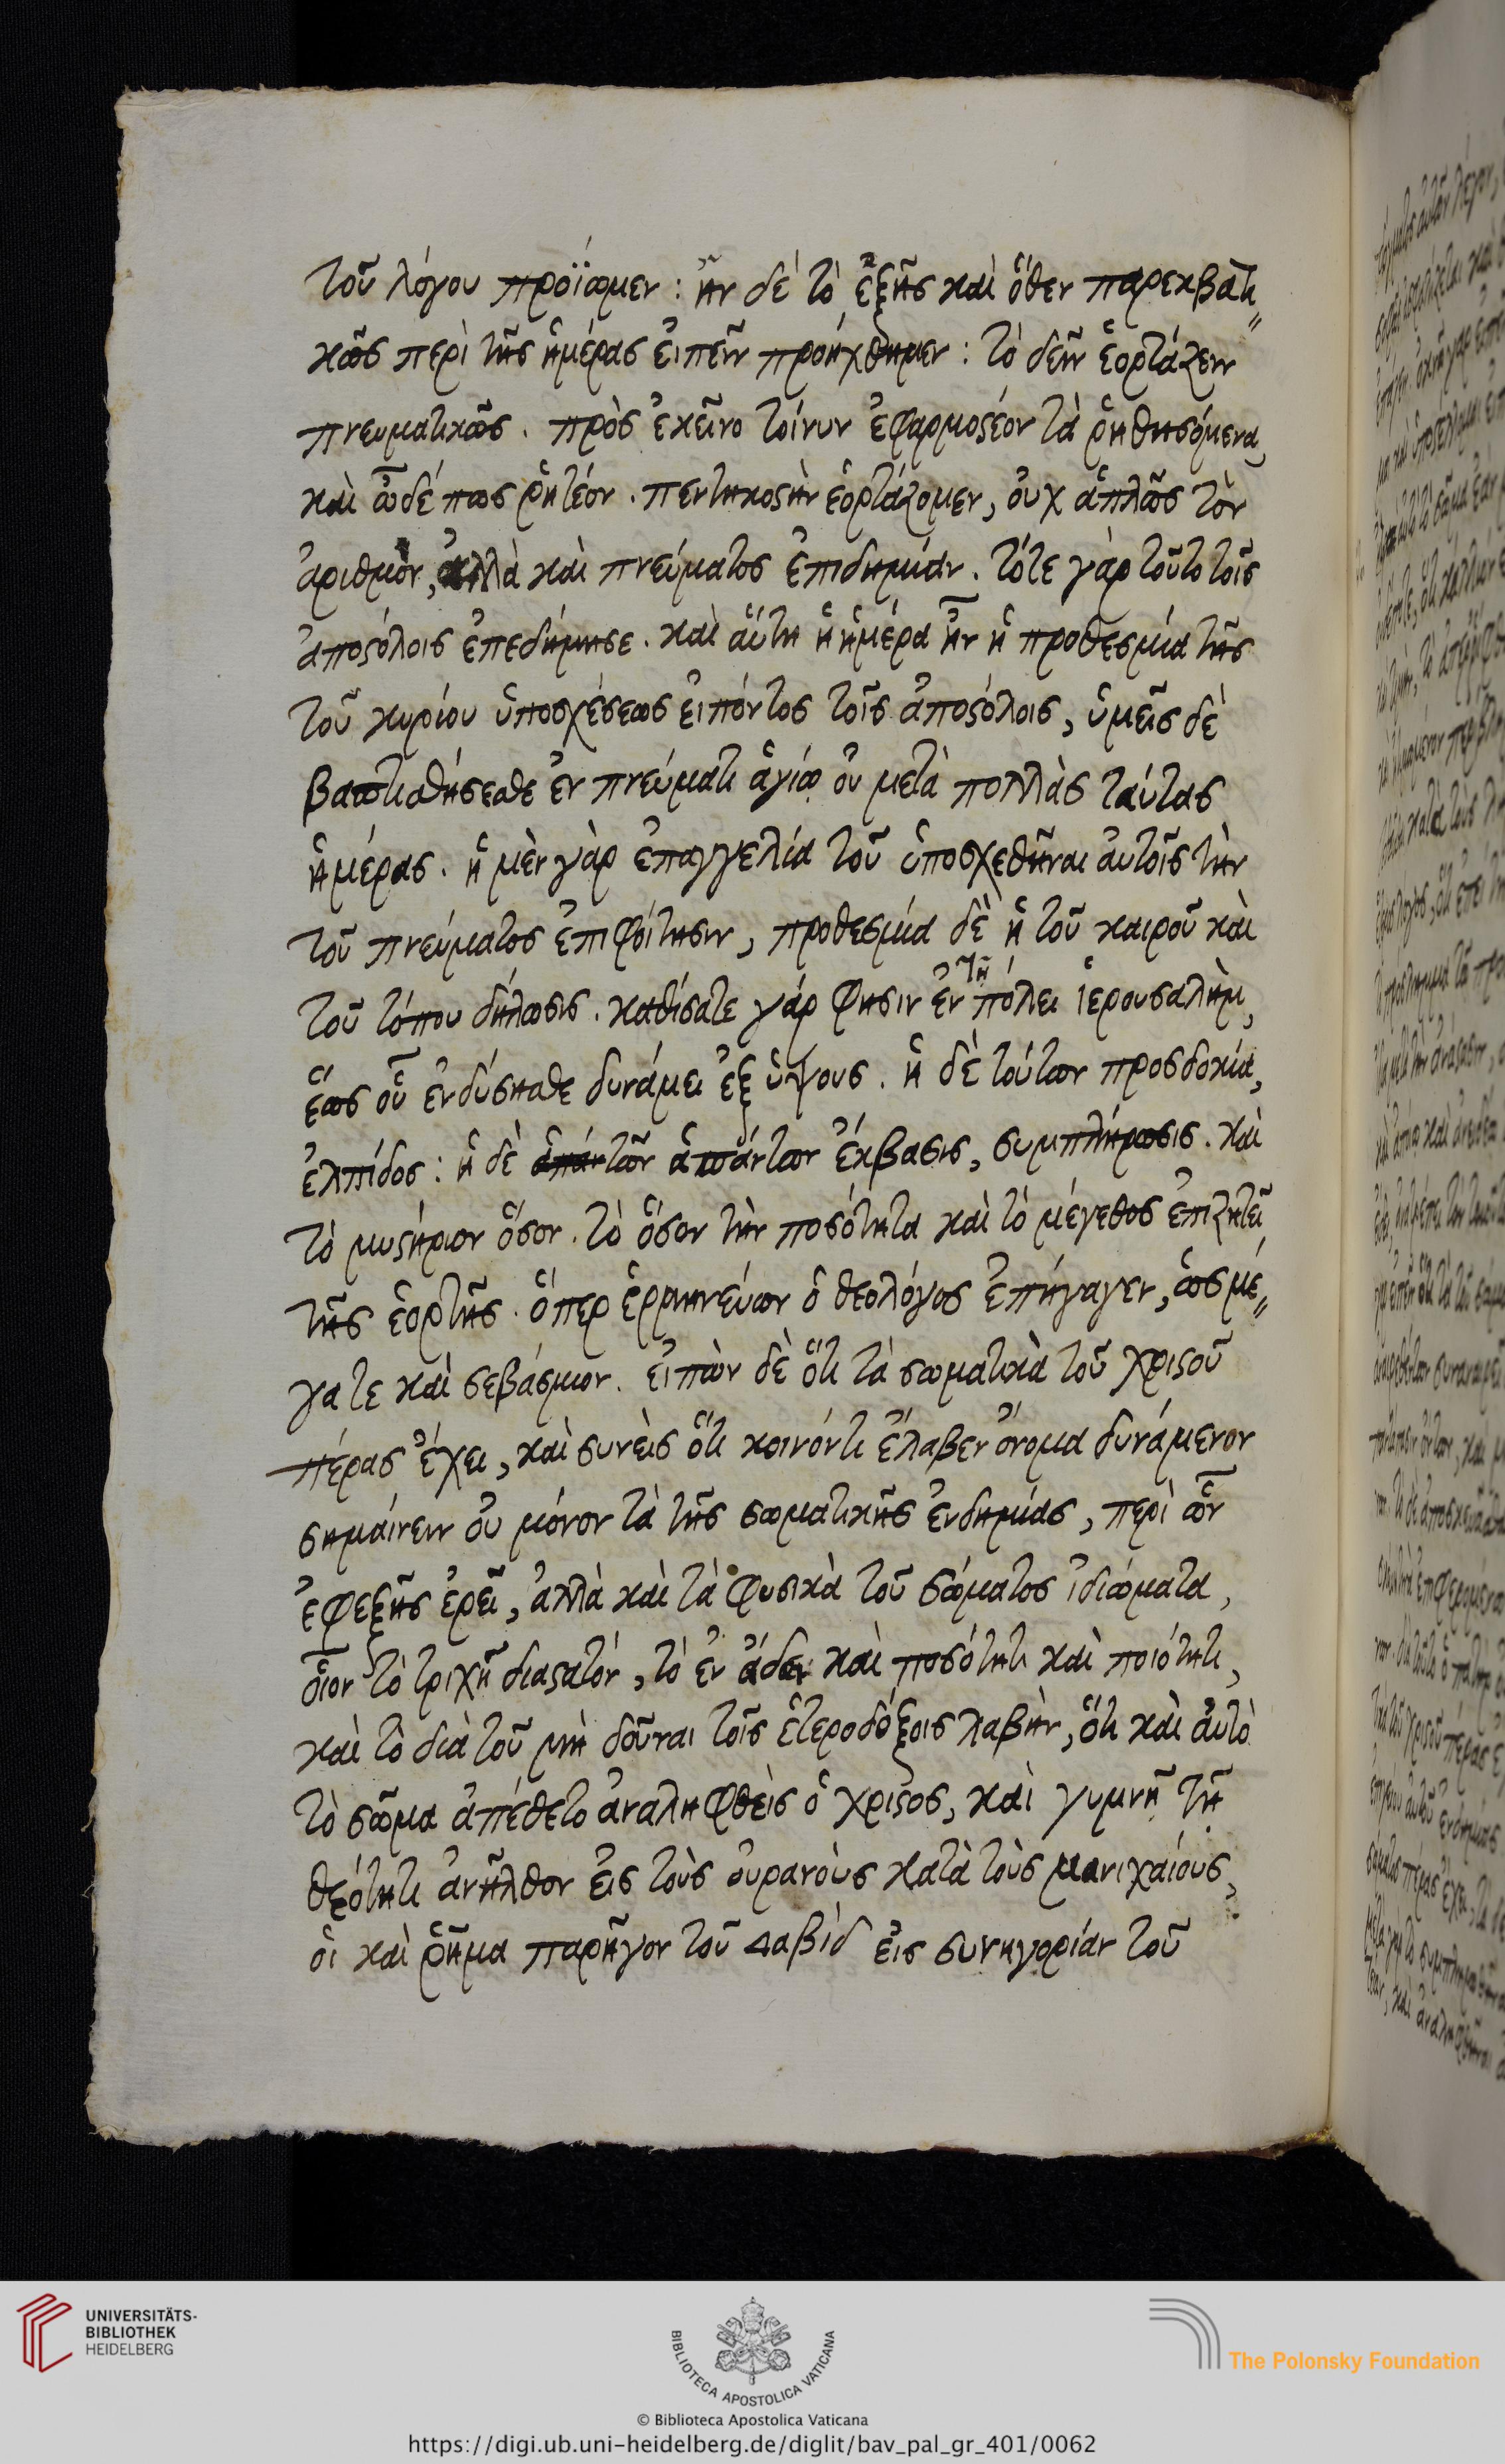 τοῦ λόγου προϊῶμεν : ἦν δὲ τὸ ἑξῆς καὶ ὅθεν παρεκβατι〃
κῶς περὶ τῆς ἡμέρας εἰπεῖν προήχθημεν : τὸ δεῖν ἑορτάζειν
πνευματικῶς . πρὸς ἐκεῖνο τοίνυν ἐφαρμοστέον τὰ ῥηθησόμενα,
καὶ ὧδέ πως ῥητέον . πεντηκοστὴν ἑορτάζομεν, οὐχ ἁπλῶς τὸν
ἀριθμὸν, ἀλλὰ καὶ πνεύματος ἐπιδημίαν . τότε γὰρ τοῦτο τοῖς
ἀποστόλοις ἐπεδήμησε . καὶ αὕτη ἡ ἡμέρα ἦν ἡ προθεσμία τῆς
τοῦ κυρίου ὑποσχέσεως εἰπόντος τοῖς ἀποστόλοις, ὑμεῖς δὲ
βαπτισθήσεσθε ἐν πνεύματι ἁγίῳ οὐ μετὰ πολλὰς ταύτας
ἡμέρας . ἡ μὲν γὰρ ἐπαγγελία τοῦ ὑποσχεθῆναι αὐτοῖς τὴν
τοῦ πνεύματος ἐπιφοίτησιν, προθεσμία δὲ ἡ τοῦ καιροῦ καὶ
τοῦ τόπου δήλωσις . καθίσατε γάρ φησιν ἐν τῇ πόλει ἱερουσαλὴμ,
ἕως οὗ ἐνδύσησθε δυνάμει ἐξ ὕψους . ἡ δὲ τούτων προσδοκία,
ἐλπίδος : ἡ δὲ ἁπάντων ἁπάντων ἔκβασις, συμπλήρωσις . καὶ
τὸ μυστήριον ὅσον . τὸ ὅσον τὴν ποσότητα καὶ τὸ μέγεθος ἐπιζητεῖ
τῆς ἑορτῆς . ὅπερ ἑρμηνεύων ὁ θεολόγος ἐπήγαγεν, ὡς μέ〃
γα τε καὶ σεβάσμιον . εἰπὼν δὲ ὅτι τὰ σωματικὰ τοῦ χριστοῦ
πέρας ἔχει, καὶ συνεὶς ὅτι κοινόν τι ἔλαβεν ὄνομα δυνάμενον
σημαίνειν οὐ μόνον τὰ τῆς σωματικῆς ἐνδημίας, περὶ ὧν
ἐφεξῆς ἐρεῖ, ἀλλὰ καὶ τὰ φυσικὰ τοῦ σώματος ἰδιώματα,
οἷον τὸ τριχῇ διαστατόν, τὸ ἐν εἴδει καὶ ποσότητι καὶ ποιότητι,
καὶ τὸ διὰ τοῦ μὴ δοῦναι τοῖς ἑτεροδόξοις λαβὴν, ὅτι καὶ αὐτὸ
τὸ σῶμα ἀπέθετο ἀναληφθεὶς ὁ χριστος, καὶ γυμνῇ τῇ
θεότητι ἀνῆλθον εἰς τοὺς οὐρανοὺς κατὰ τοὺς μανιχαίους,
οἳ καὶ ῥῆμα παρῆγον τοῦ δαβὶδ εἰς συνηγορίαν τοῦ
UNIVERSITÄTS-
BIBLIOTHEK
HEIDELBERG
BIBLIOTECA APOSTOLICA VATICANA
The Polonsky Foundation
© Biblioteca Apostolica Vaticana
https://digi.ub.uni-heidelberg.de/diglit/bav_pal_gr_401/0062